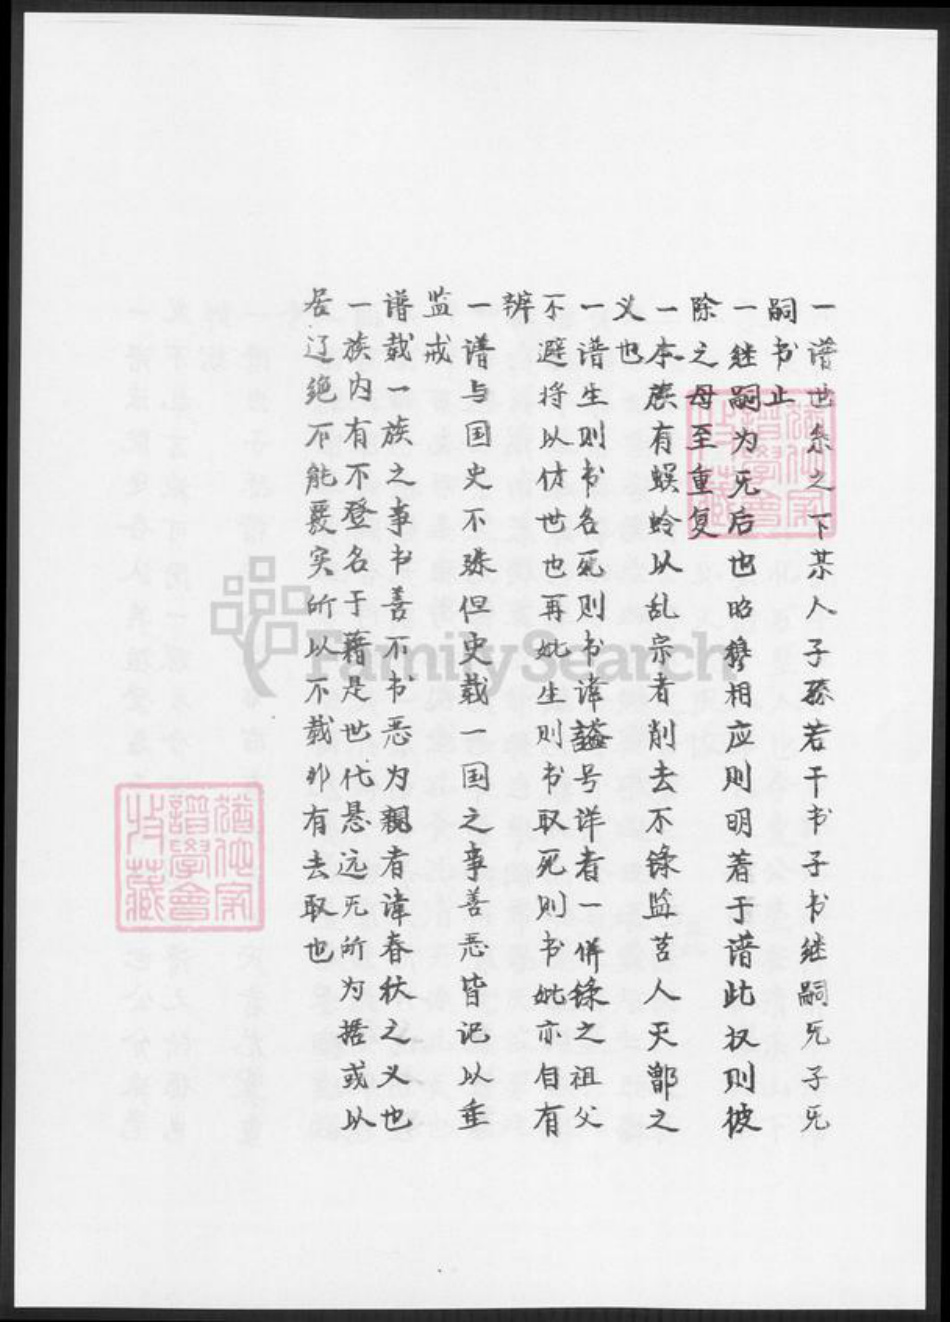 一谱世系之下某人子孫若干书子书继嗣旡子旡
嗣书止
一继嗣为旡后也昭穆相应则明着于谱此权则彼
除之毋至重复
一本族有螟蛉以乱宗者削去不錄监莒人灭鄫之
义也
一谱生则书名死则书諱謚号详者一併錄之祖父
不避将以传世也再妣生则书取死则书妣亦自有
辨
一谱与国史不殊但史载一国之事善恶皆记以垂
监戒
谱载一族之事书善不书恶为親者諱春秋之义也
一族内有不登名于藉是世代悬远旡所为据或以
居辽绝不能覈实所以不载非有去取也
猶他家
譜學會
收藏
猶他家
譜學會
收藏
FamilySearch